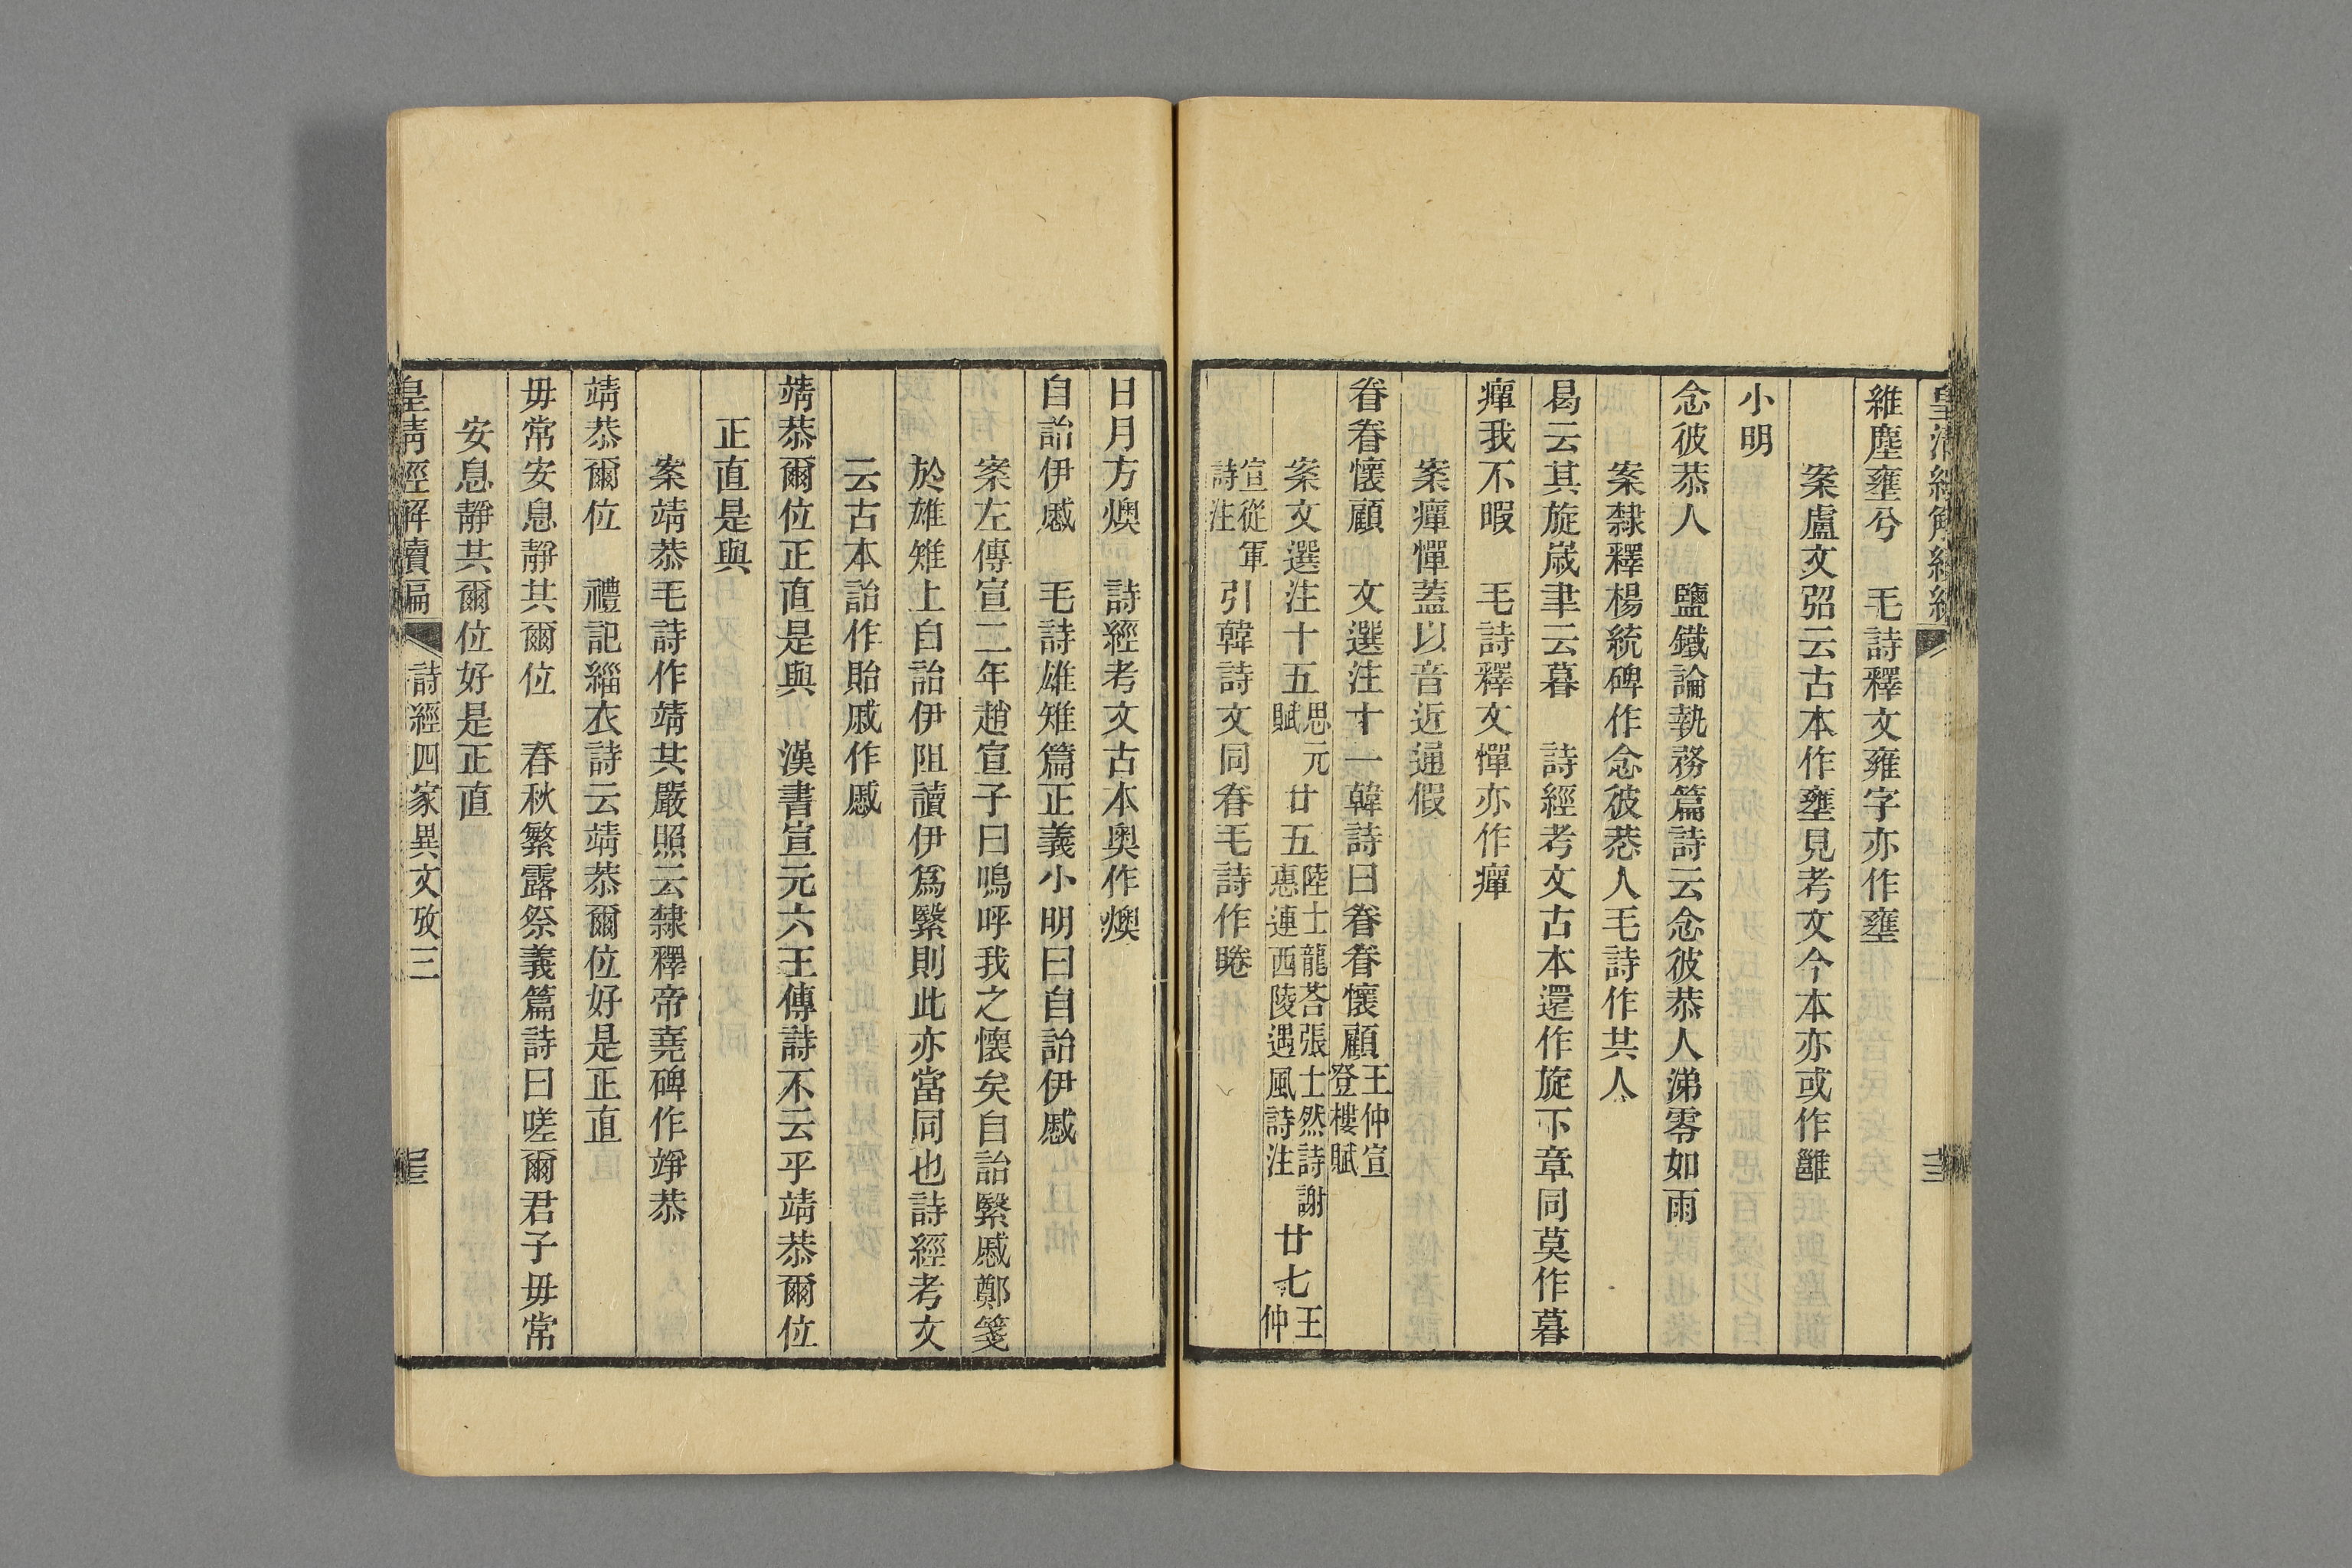 維塵壅兮　毛詩釋文雍字亦作壅
案盧文弨云古本作壅見考文今本亦或作雝
小明
念彼恭人　鹽鐵論執務篇詩云念彼恭人涕零如雨
案隸釋楊統碑作念彼恭人毛詩作共人
曷云其旋歲聿云暮　詩經考文古本還作旋下章同莫作暮
癉我不暇　毛詩釋文憚亦作癉
案癉憚蓋以音近通假
眷眷懷顧　文選注十一韓詩曰眷眷懷顧王仲宣登樓賦
案文選注十五思元賦廿五陸士龍荅張士然詩謝惠連西陵遇風詩注廿七王仲
宣從軍詩注引韓詩文同眷毛詩作睠
日月方燠　詩經考文古本奧作燠
自詒伊慼　毛詩雄雉篇正義小明曰自詒伊慼
案左傳宣二年趙宣子曰嗚呼我之懷矣自詒繄慼鄭箋
於雄雉上自詒伊阻讀伊爲繄則此亦當同也詩經考文
云古本詒作貽戚作慼
靖恭爾位正直是與　漢書宣元六王傳詩不云乎靖恭爾位
正直是與
案靖恭毛詩作靖共嚴照云隸釋帝堯碑作竫恭
靖恭爾位　禮記緇衣詩云靖恭爾位好是正直
毋常安息靜共爾位　春秋繁露祭義篇詩曰嗟爾君子毋常
安息靜共爾位好是正直
皇清經解續編　詩經四家異文攷三